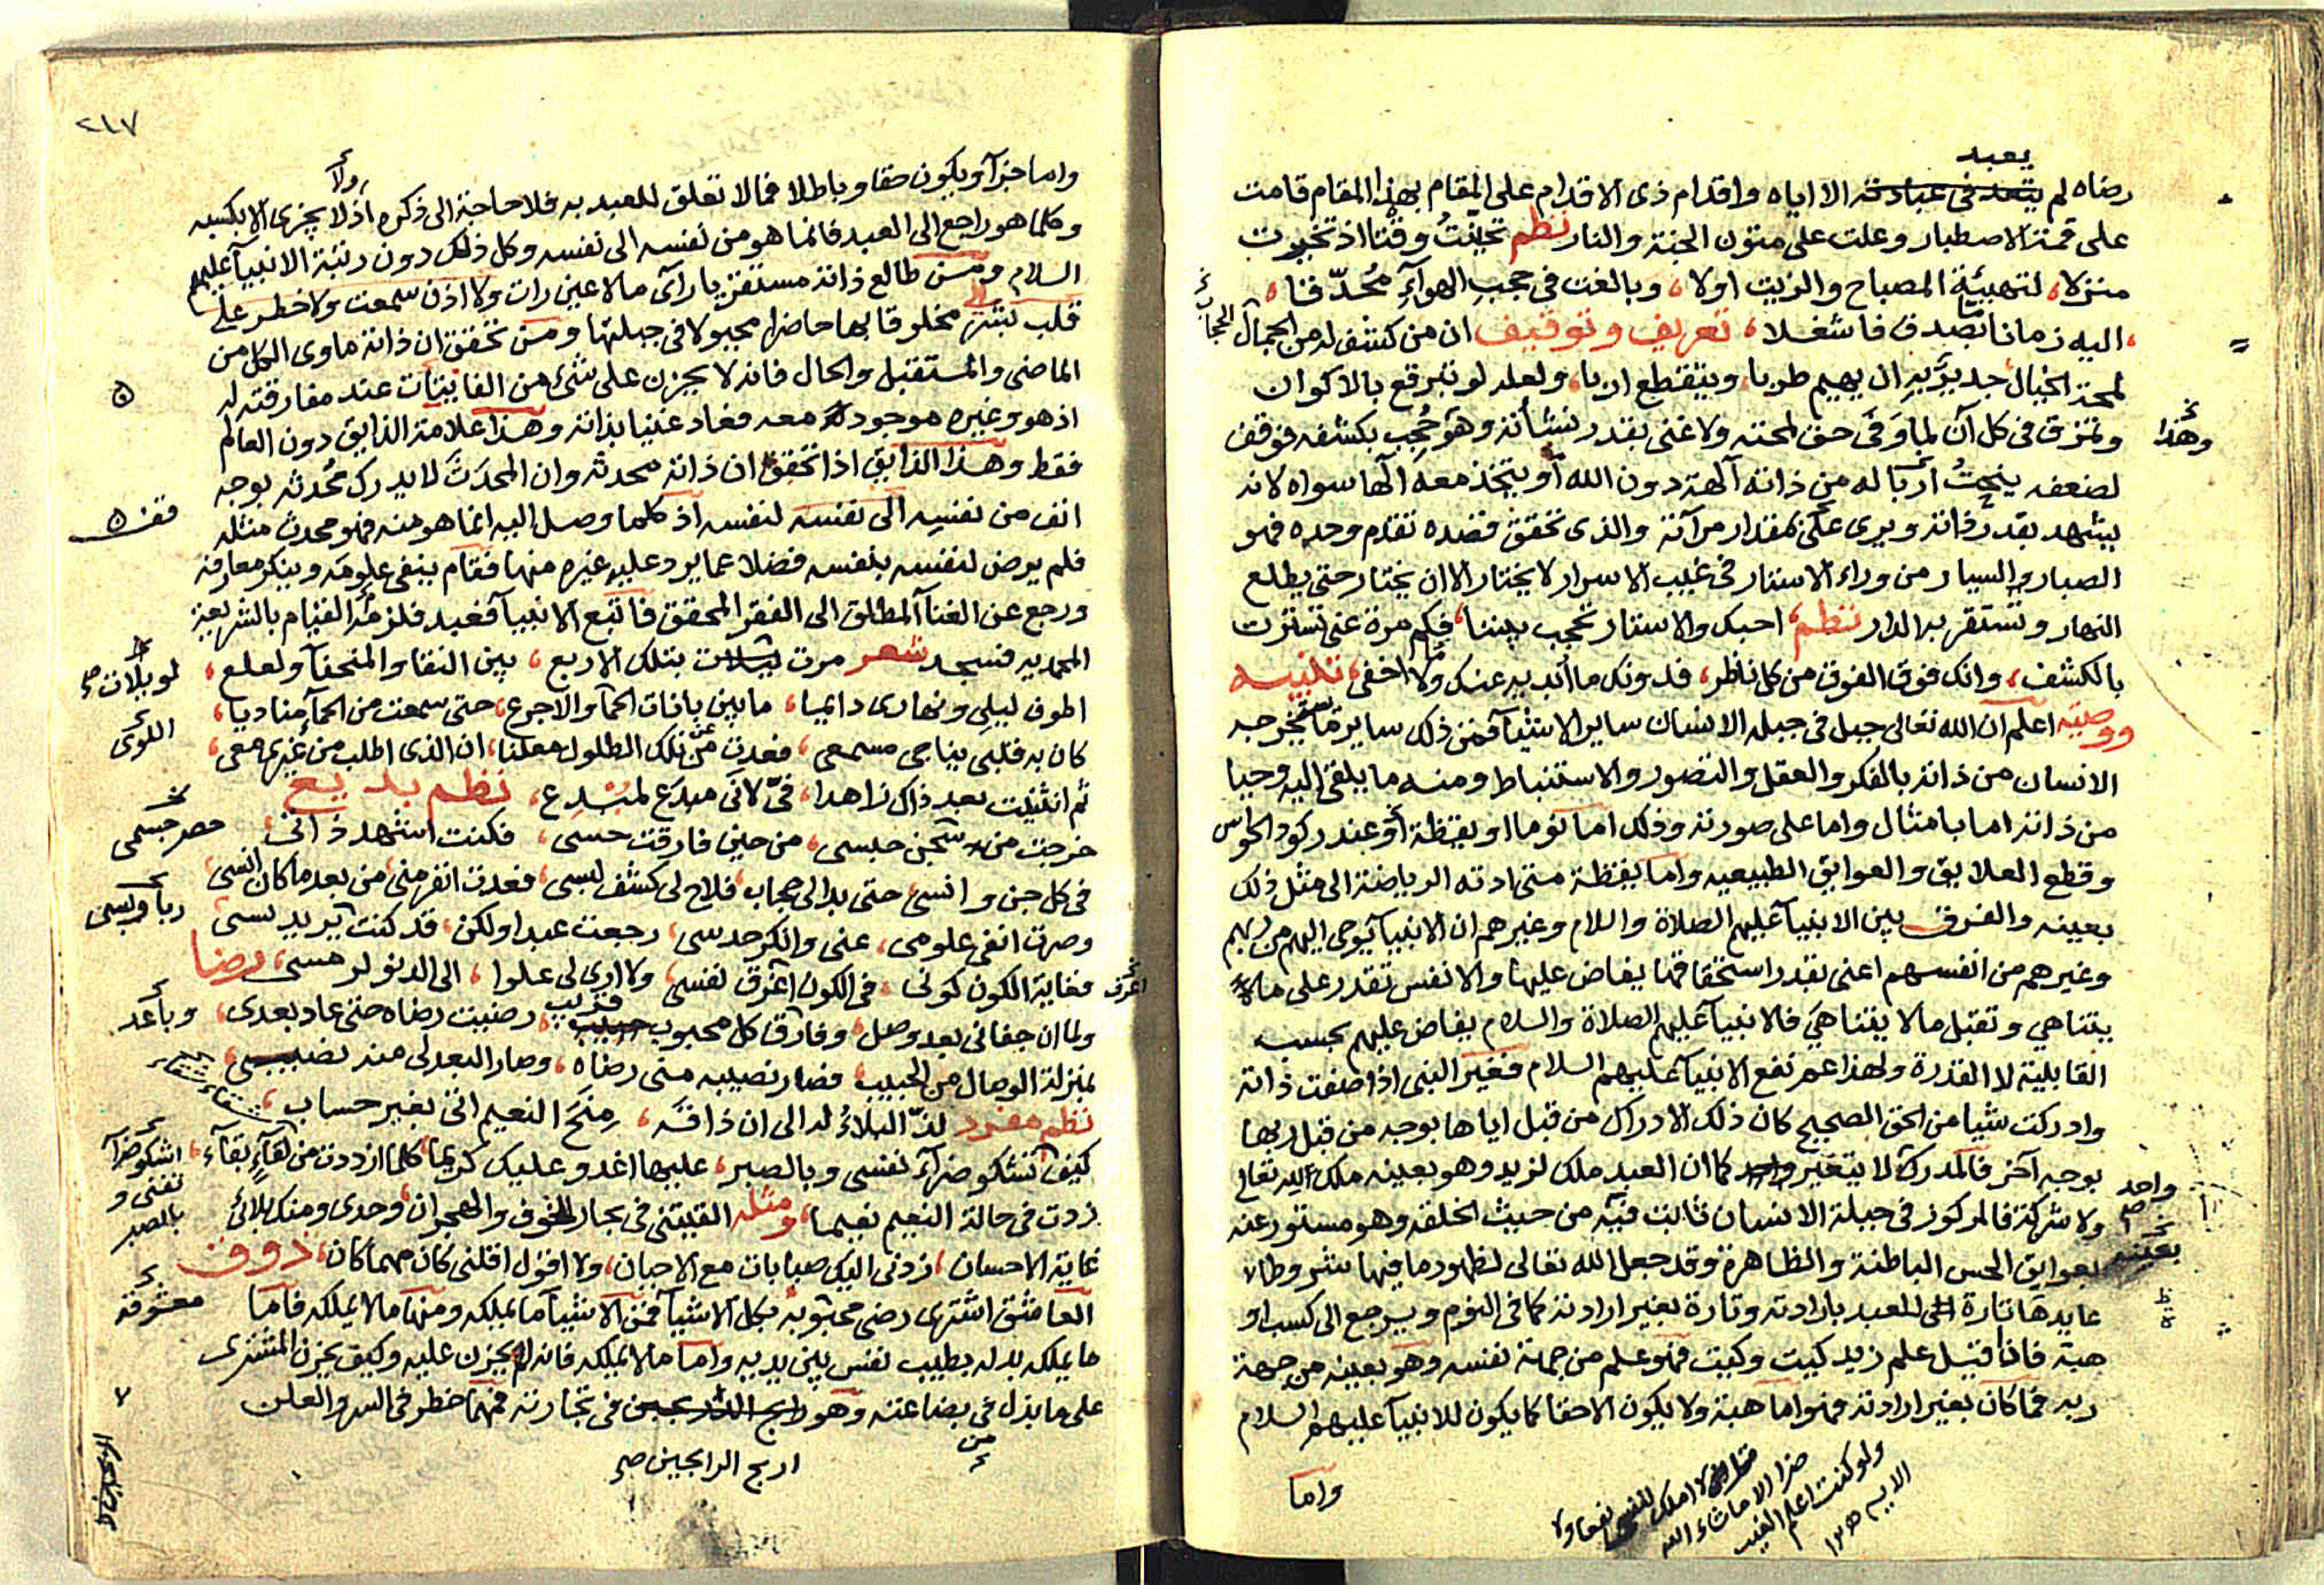 يعبد
رضاه لم يتعد في عبادته الا اياه واقدام ذي الاقدام على المقام بهذا المقام قامت
على قمة الاصطبار وعلت على متون الجنة والنار نظم تحينت وقتا اذ تخيرت
منزلا، لتهيئة المصباح والزيت اولا، وبالغت في حجب الهوآء محدّقا،
اليه زمانا بالصدف فاشغلا، تعريف وتوقيف ان من كشف له من الجمال الحجاب
لمحة الخيال جدير به ان يهيم طربا، ويتقطع اربا، ولعله لو تبرقع بالاكوان
وتمزق في كل آن لما وفى حق لمحته ولا غنى بقدر نشأته وهو حجب بكشفه فوقف
وهذا
لضعفه ينحت اربا له من ذاته آلهة دون الله أو يتخذ معه الها سواه لانه
يشهد بقدر فاته ويرى على مقدار مرآته والذي تحقق قصده تقدم وحده فهو
الصبار والسيار من وراء الاستار في غيب الاسرار لا يختار الا ان يختار حتى يطلع
النهار وتستقر به الدار نظم، احبك والاستار تحجب بيننا، فكم مرة عني تسترت
بالكشف، وانك فوق الفوق من كل ناظر، فدونك ما أبديه عنك وما اخفى، تنبيه
ووصية اعلم ان الله تعالى جبل في جبلة الانسان ساير الاشيآ فمن ذلك ساير ما يستخرجه
الانسان من ذاته بالفكر والعقل والتصور والاستنباط ومنه ما يلقى اليه وحيا
من ذاته اما بامثال واما على صورته وذلك اما نوما او يقظة أو عند ركود الحواس
وقطع العلايق والعوايق الطبيعيه واما يقظة متى ادته الرياضة الى مثل ذلك
بعينه والفرق بين الانبيآ عليهم الصلاة والسلام وغيرهم ان الانبيآ يوحى اليهم من ربهم
وغيرهم من انفسهم اعني بقدر استحقاقها يفاض عليها والانفس تقدر على ما لا
يتناهي وتقبل ما لا يتناهي فالانبيآ عليهم الصلاة والسلام يفاض عليهم بحسب
القابلية لا القدرة ولهذا عم نفع الانبيآ عليهم السلام فغير النبي اذا صفت ذاته
وادركت شيا من الحق الصحيح كان ذلك الادراك من قبل اياها بوجه من قبل ربها
بوجه آخر فالمدرك لا يتغير واحد كما ان العبد ملك لزيد وهو بعينه ملك لله تعالى
واحد
ولا شركة فالمركوز في جبلة الانسان ثابت فيه من حيث الخلقه وهو مستور عنه
بعوايق الحس الباطنة والظاهرة وقد جعل الله تعالى لظهور ما فيها شروطا
بعينه
عايدها تارة الى العبد بارادته وتارة بغير ارادته كما في النوم ويرجع الى كسب او
هبة فاذا قيل علم زيد كيت وكيت فهو علم من جهة نفسه وهو بعينه من جهة
ربه فما كان بغير ارادته فهو اما هبة ولا يكون الا حقا كما يكون للانبيآ عليهم السلام
واما
قل لا املك لنفسي نفعا ولا
ضرا الا ما شاء الله
ولو كنت اعلم الغيب
الايه
٢١٧
واما خبرآ ويكون حقا وباطلا فما لا تعلق للعبد به فلا حاجة الى ذكره اذ لا يجزى الا بكسبه
وكلما هو راجع الى العبد فانما هو من نفسه الى نفسه وكل ذلك دون رتبة الانبيآ عليهم
السلام ومن طالع ذاته مستقريا رآى ما لا عين رات ولا اذن سمعت ولا خطر على
قلب بشر مخلوقا بها حاضرا مجبولا في جبلتها ومن تحقق ان ذاته ماوى الكل من
الماضي والمستقبل والحال فانه لا يحزن على شيء من الفايتات عند مفارقته له
اذ هو وغيره موجود معه فعاد غنيا بذاته وهذا علامة الذايق دون العالم
فقط وهذا الذايق اذا تحقق ان ذاته محدثة وان المحدَث لا يدرك محدثه بوجه
انف من نفسه الى نفسه لنفسه اذ كلما وصل اليه انما هو منه فهو محدث مثله
فلم يرض لنفسه بنفسه فضلا عما يرد عليه غيره منها فقام ينفي علومه وينكر معارفه
ورجع عن الغنا المطلق الى الفقر المحقق فاتبع الانبيآ فعبد فلزمه القيام بالشريعة
المحمديه فسجد شعر مرت بتلك الاربع، بين النقا والمنحنآ ولعلع،
لو يلات صح
اطوف ليلي ونهاري دايما، ما بين بانات الحما والاجرع، حتى سمعت من الحما مناديا،
اللوى
كان به قلبي يناجي مسمعي، فعدت عن تلك الطلول معلنا، ان الذي اطلب من غيري معي،
ثم انثنيت بعد ذاك زاهدا، فيّ لاني مبدع لمبدع، نظم بديع
خرجت من سجن حبسي، من حين فارقت حسي، فكنت اشهد ذاتي،
حصر جسمي
في كل جن وانسي حتى بدا لى حجاب، فلاح لى كشف لبسي، فعدت انفر مني، من بعد ما كان انسي،
وصرت انفي علومي، عني وانكر حدسي، رجعت عبدا ولكن، قد كنت
فغاية الكون كوني، في الكون اغرق نفسي، ولا ارى لى علوا، الى الدنو لرمسي، رضا
اغرق
ولما ان جفاني بعد وصل، وفارق كل محبوب قريب، رضيت رضاه حتى عاد بعدي،
وباعد
بمنزلة الوصال من الحبيب، فصار نصيبه مني رضاه، وصار البعد لى منه نصيبي،
نظم مفرد لذّ البلآء له الى ان ذاقه، منح النعيم اتى بغير حساب،
كيف اشكو ضرآء نفسي وبالصبر، عليها اغدو عليك كريما، كلما ازددت من بقآء،
اشكو ضرآ
نفسي و
بالصبر
زدت في حالة النعيم نعيما، ومثله القيتني في بحار الخوف والهجران، وحدي ومنك بلائي
غاية الاحسان، زدني اليك صبابات مع الاحيان، ولا اقول اقلني كان مهما كان، ذوق
العاشق اشترى رضى محبوبه بكل الاشيآ فمن الاشيآ ما يملكه ومنها ما لا يملكه فاما
معشوقه
ما يملكه بدله بطيب نفس بين يديه واما ما لا يملكه فانه لم يحزن عليه وكيف يحزن المشترى
على ما بذل في بضاعته وهو رابح في تجارته فمهما خطر في السر والعلن
من
اربح الرابحين صح